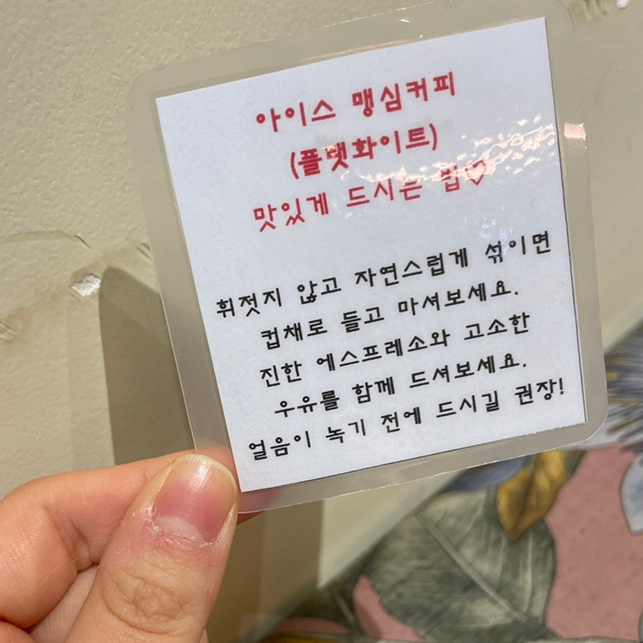 아이스 맹심커피
(플랫화이트)
맛있게 드시는 법♡
휘젓지 않고 자연스럽게 섞이면
컵채로 들고 마셔보세요.
진한 에스프레소와 고소한
우유를 함께 드셔보세요.
얼음이 녹기 전에 드시길 권장!